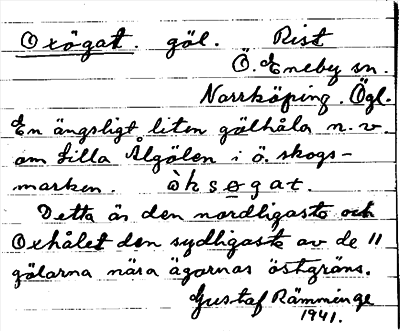 Oxögat. göl. Rist
Ö. Eneby sn.
Norrköping. Ögl.
En ängsligt liten gölhåla n.v.
om Lilla Älgölen i ö. skogs-
marken. òksogat.
Detta är den nordligaste och
Oxhålet den sydligaste av de 11
gölarna nära ägornas östgräns.
Gustaf Rämminge
1941.